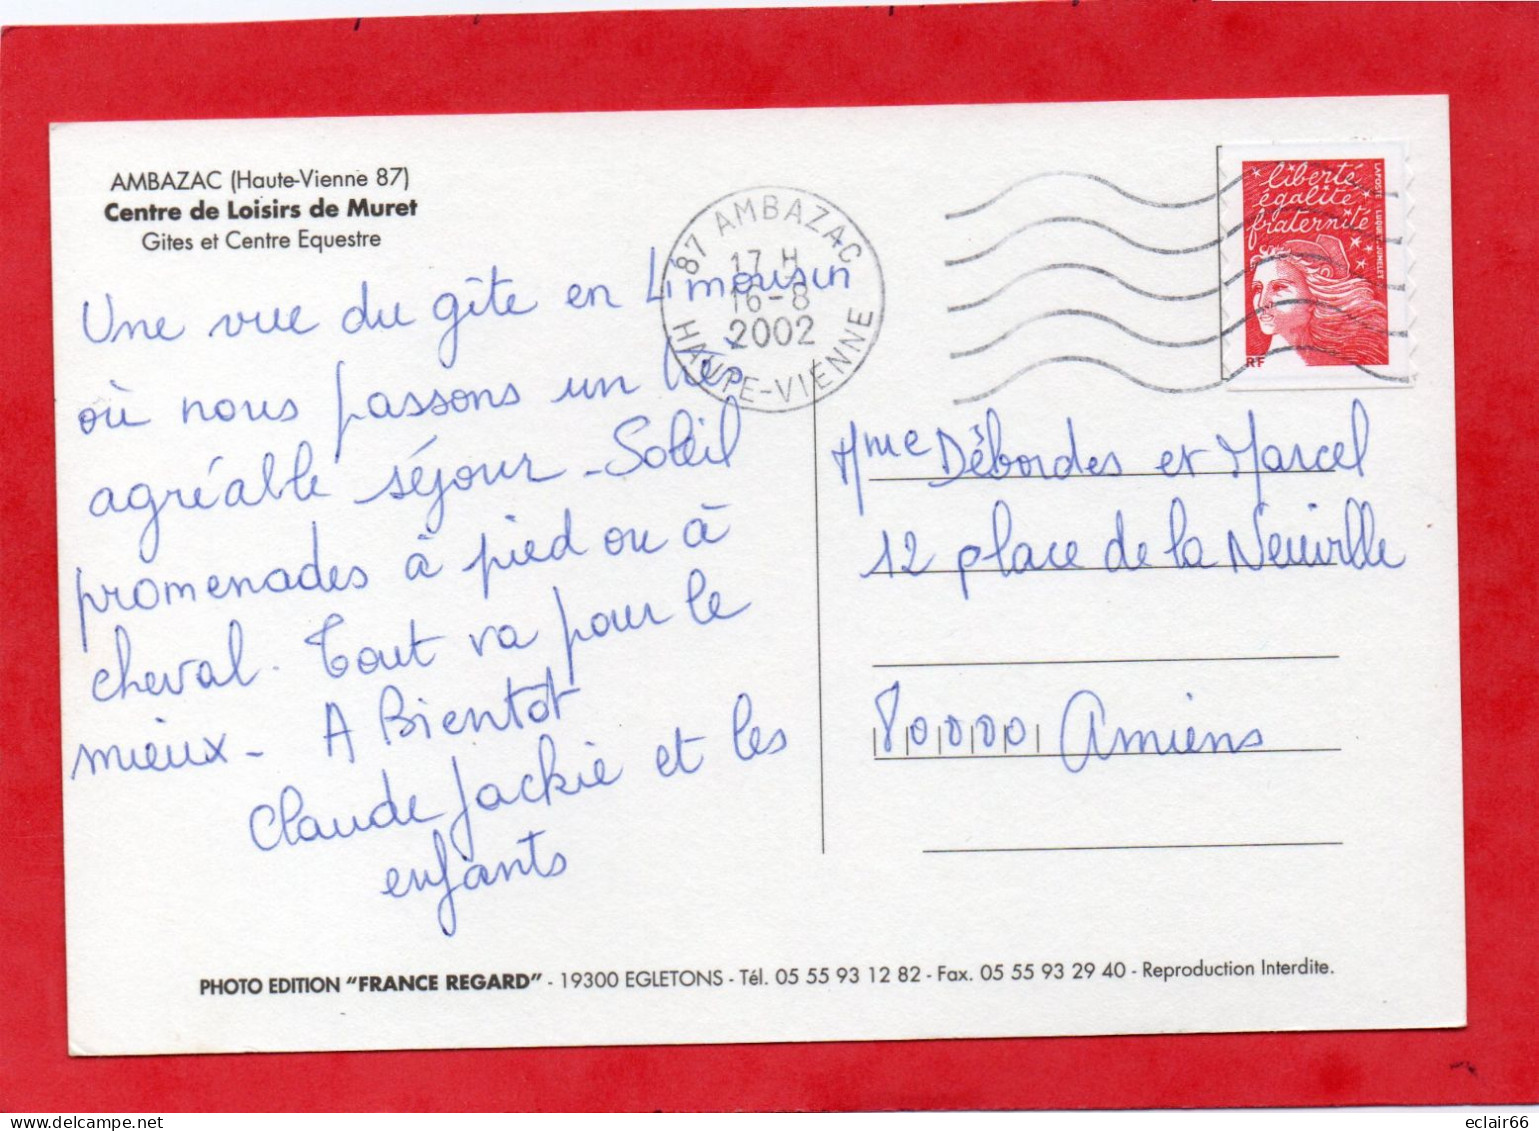 AMBAZAC (Haute-Vienne 87)
Centre de Loisirs de Muret
Gites et Centre Equestre
Une vue du gîte en Limousin
où nous passons un très
agréable séjour - Soleil
promenades à pied ou à
cheval. Tout va pour le
mieux - A Bientôt
Claude Jackie et les
enfants
87 AMBAZAC
17 H
16-8
2002
HAUTE-VIENNE
liberté
égalité
fraternité
RF
LAPOSTE LUQUET-JUMELET
Mme Débordes et Marcel
12 place de la Neuville
80000 Amiens
PHOTO EDITION "FRANCE REGARD" - 19300 EGLETONS - Tél. 05 55 93 12 82 - Fax. 05 55 93 29 40 - Reproduction Interdite.
eclair66